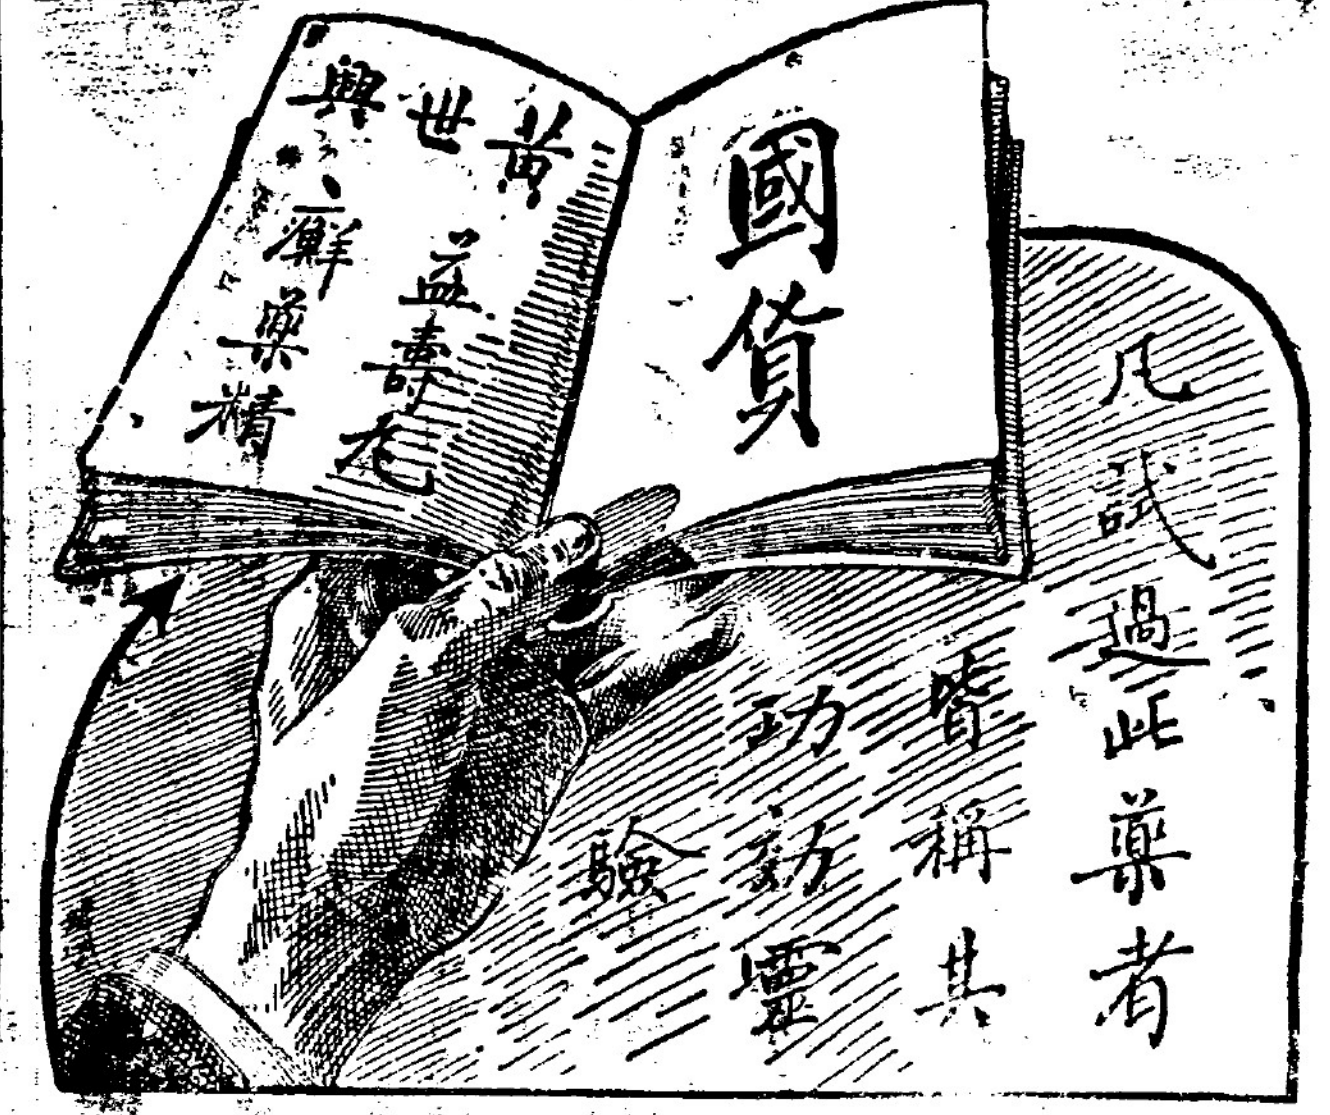 國貨
黃世興
益壽花
癬藥精
凡試過此藥者
皆稱其
功効靈
驗